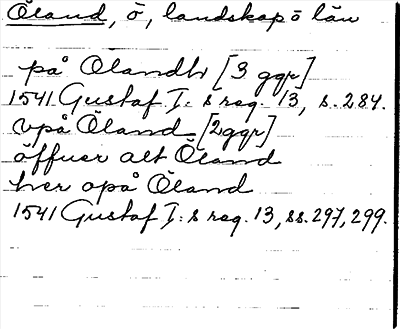 Öland, ö, landskap o län
på Olandh [3 ggr]
1541 Gustaf I:s reg. 13, s. 284.
vpå Öland [2 ggr]
öffuer alt Öland
her opå Öland
1541 Gustaf I:s reg. 13, ss. 297, 299.